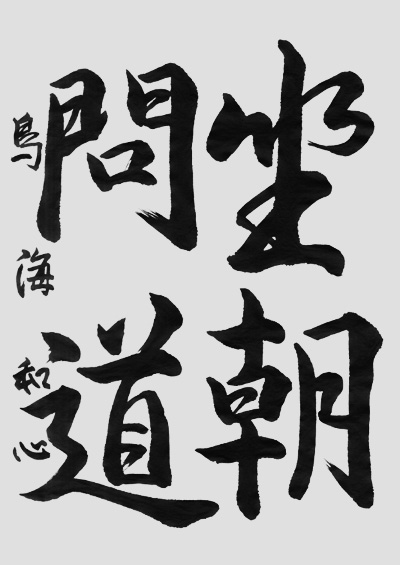 坐朝
問道
鳥海和心